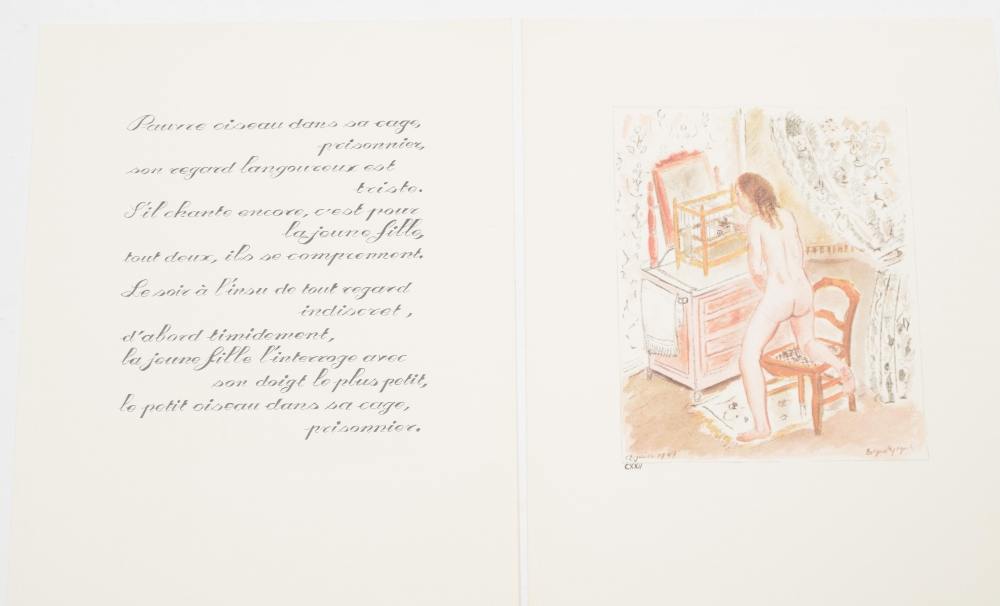 Pauvre oiseau dans sa cage,
prisonnier,
son regard langoureux est
triste.
S'il chante encore, c'est pour
la jeune fille,
tout deux, ils se comprennent.
Le soir à l'insu de tout regard
indiscret,
d'abord timidement,
la jeune fille l'interroge avec
son doigt le plus petit,
le petit oiseau dans sa cage,
prisonnier.
CXXII